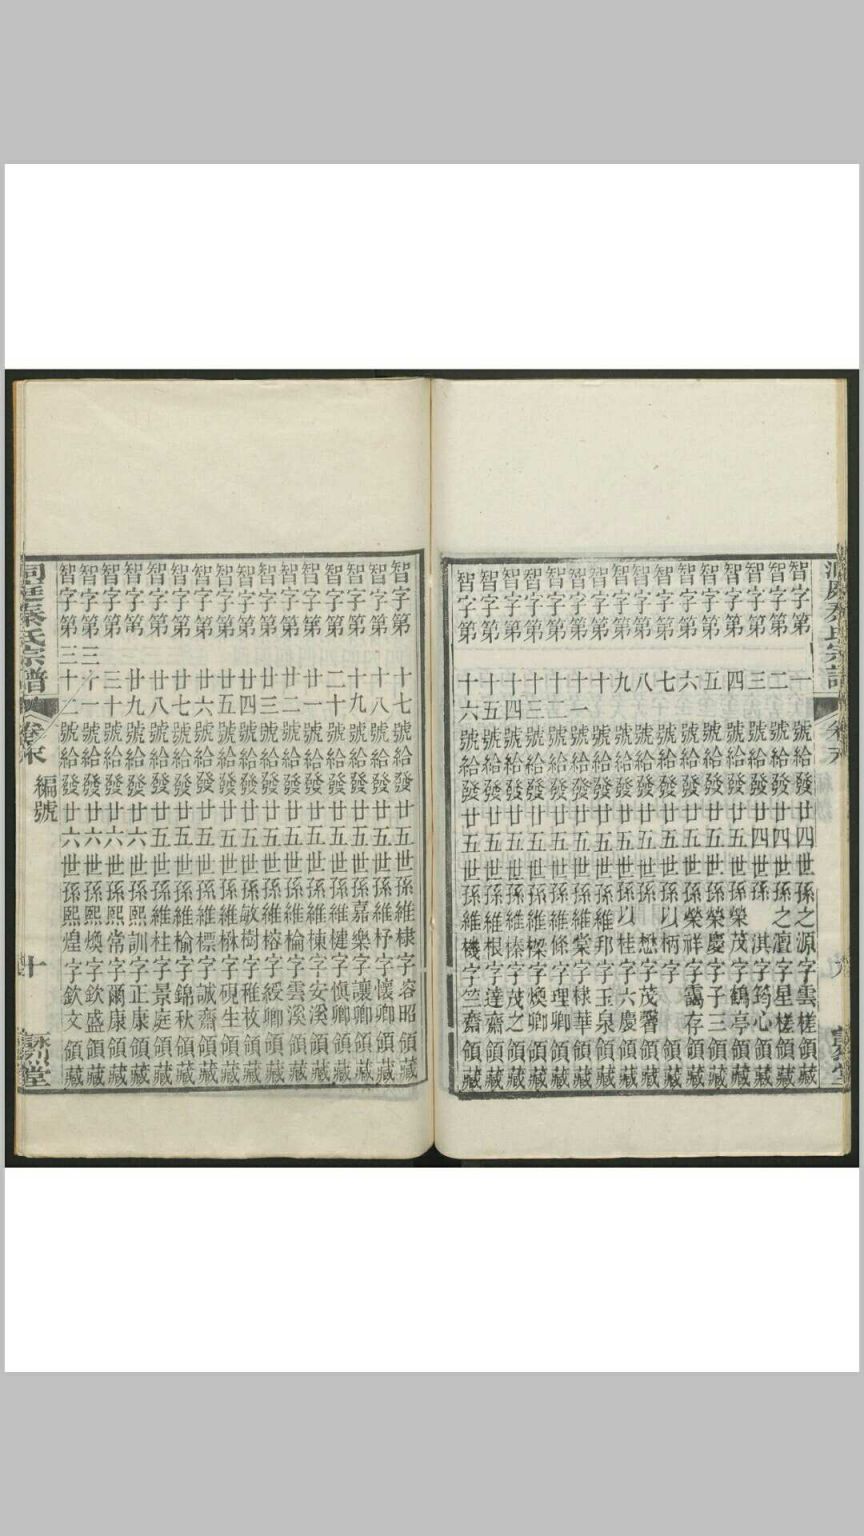 洞庭秦氏宗譜
智字第一號給發廿四世孫之源字雲槎領藏
智字第二號給發廿四世孫之澶字星槎領藏
智字第三號給發廿四世孫淇字筠心領藏
智字第四號給發廿五世孫榮茂字鶴亭領藏
智字第五號給發廿五世孫榮慶字子三領藏
智字第六號給發廿五世孫榮祥字靄存領藏
智字第七號給發廿五世孫以柄字領藏
智字第八號給發廿五世孫懋字茂馨領藏
智字第九號給發廿五世孫以桂字六慶領藏
智字第十號給發廿五世孫維邦字玉泉領藏
智字第十一號給發廿五世孫維棠字棣華領藏
智字第十二號給發廿五世孫維條字理卿領藏
智字第十三號給發廿五世孫維樑字煥卿領藏
智字第十四號給發廿五世孫維榛字茂之領藏
智字第十五號給發廿五世孫維根字達齋領藏
智字第十六號給發廿五世孫維機字竺齋領藏
智字第十七號給發廿五世孫維棣字容昭領藏
智字第十八號給發廿五世孫維杼字懷卿領藏
智字第十九號給發廿五世孫嘉樂字讓卿領藏
智字第二十號給發廿五世孫維楗字慎卿領藏
智字第廿一號給發廿五世孫維棟字安溪領藏
智字第廿二號給發廿五世孫維棆字雲溪領藏
智字第廿三號給發廿五世孫維榕字綬卿領藏
智字第廿四號給發廿五世孫敏樹字稚枚領藏
智字第廿五號給發廿五世孫維楙字硯生領藏
智字第廿六號給發廿五世孫維標字誠齋領藏
智字第廿七號給發廿五世孫維榆字錦秋領藏
智字第廿八號給發廿五世孫維柱字景庭領藏
智字第廿九號給發廿六世孫熙訓字正康領藏
智字第三十號給發廿六世孫熙常字爾康領藏
智字第三十一號給發廿六世孫熙煥字欽盛領藏
智字第三十二號給發廿六世孫熙煌字欽文領藏
洞庭秦氏宗譜 卷末 編號 十 烈堂